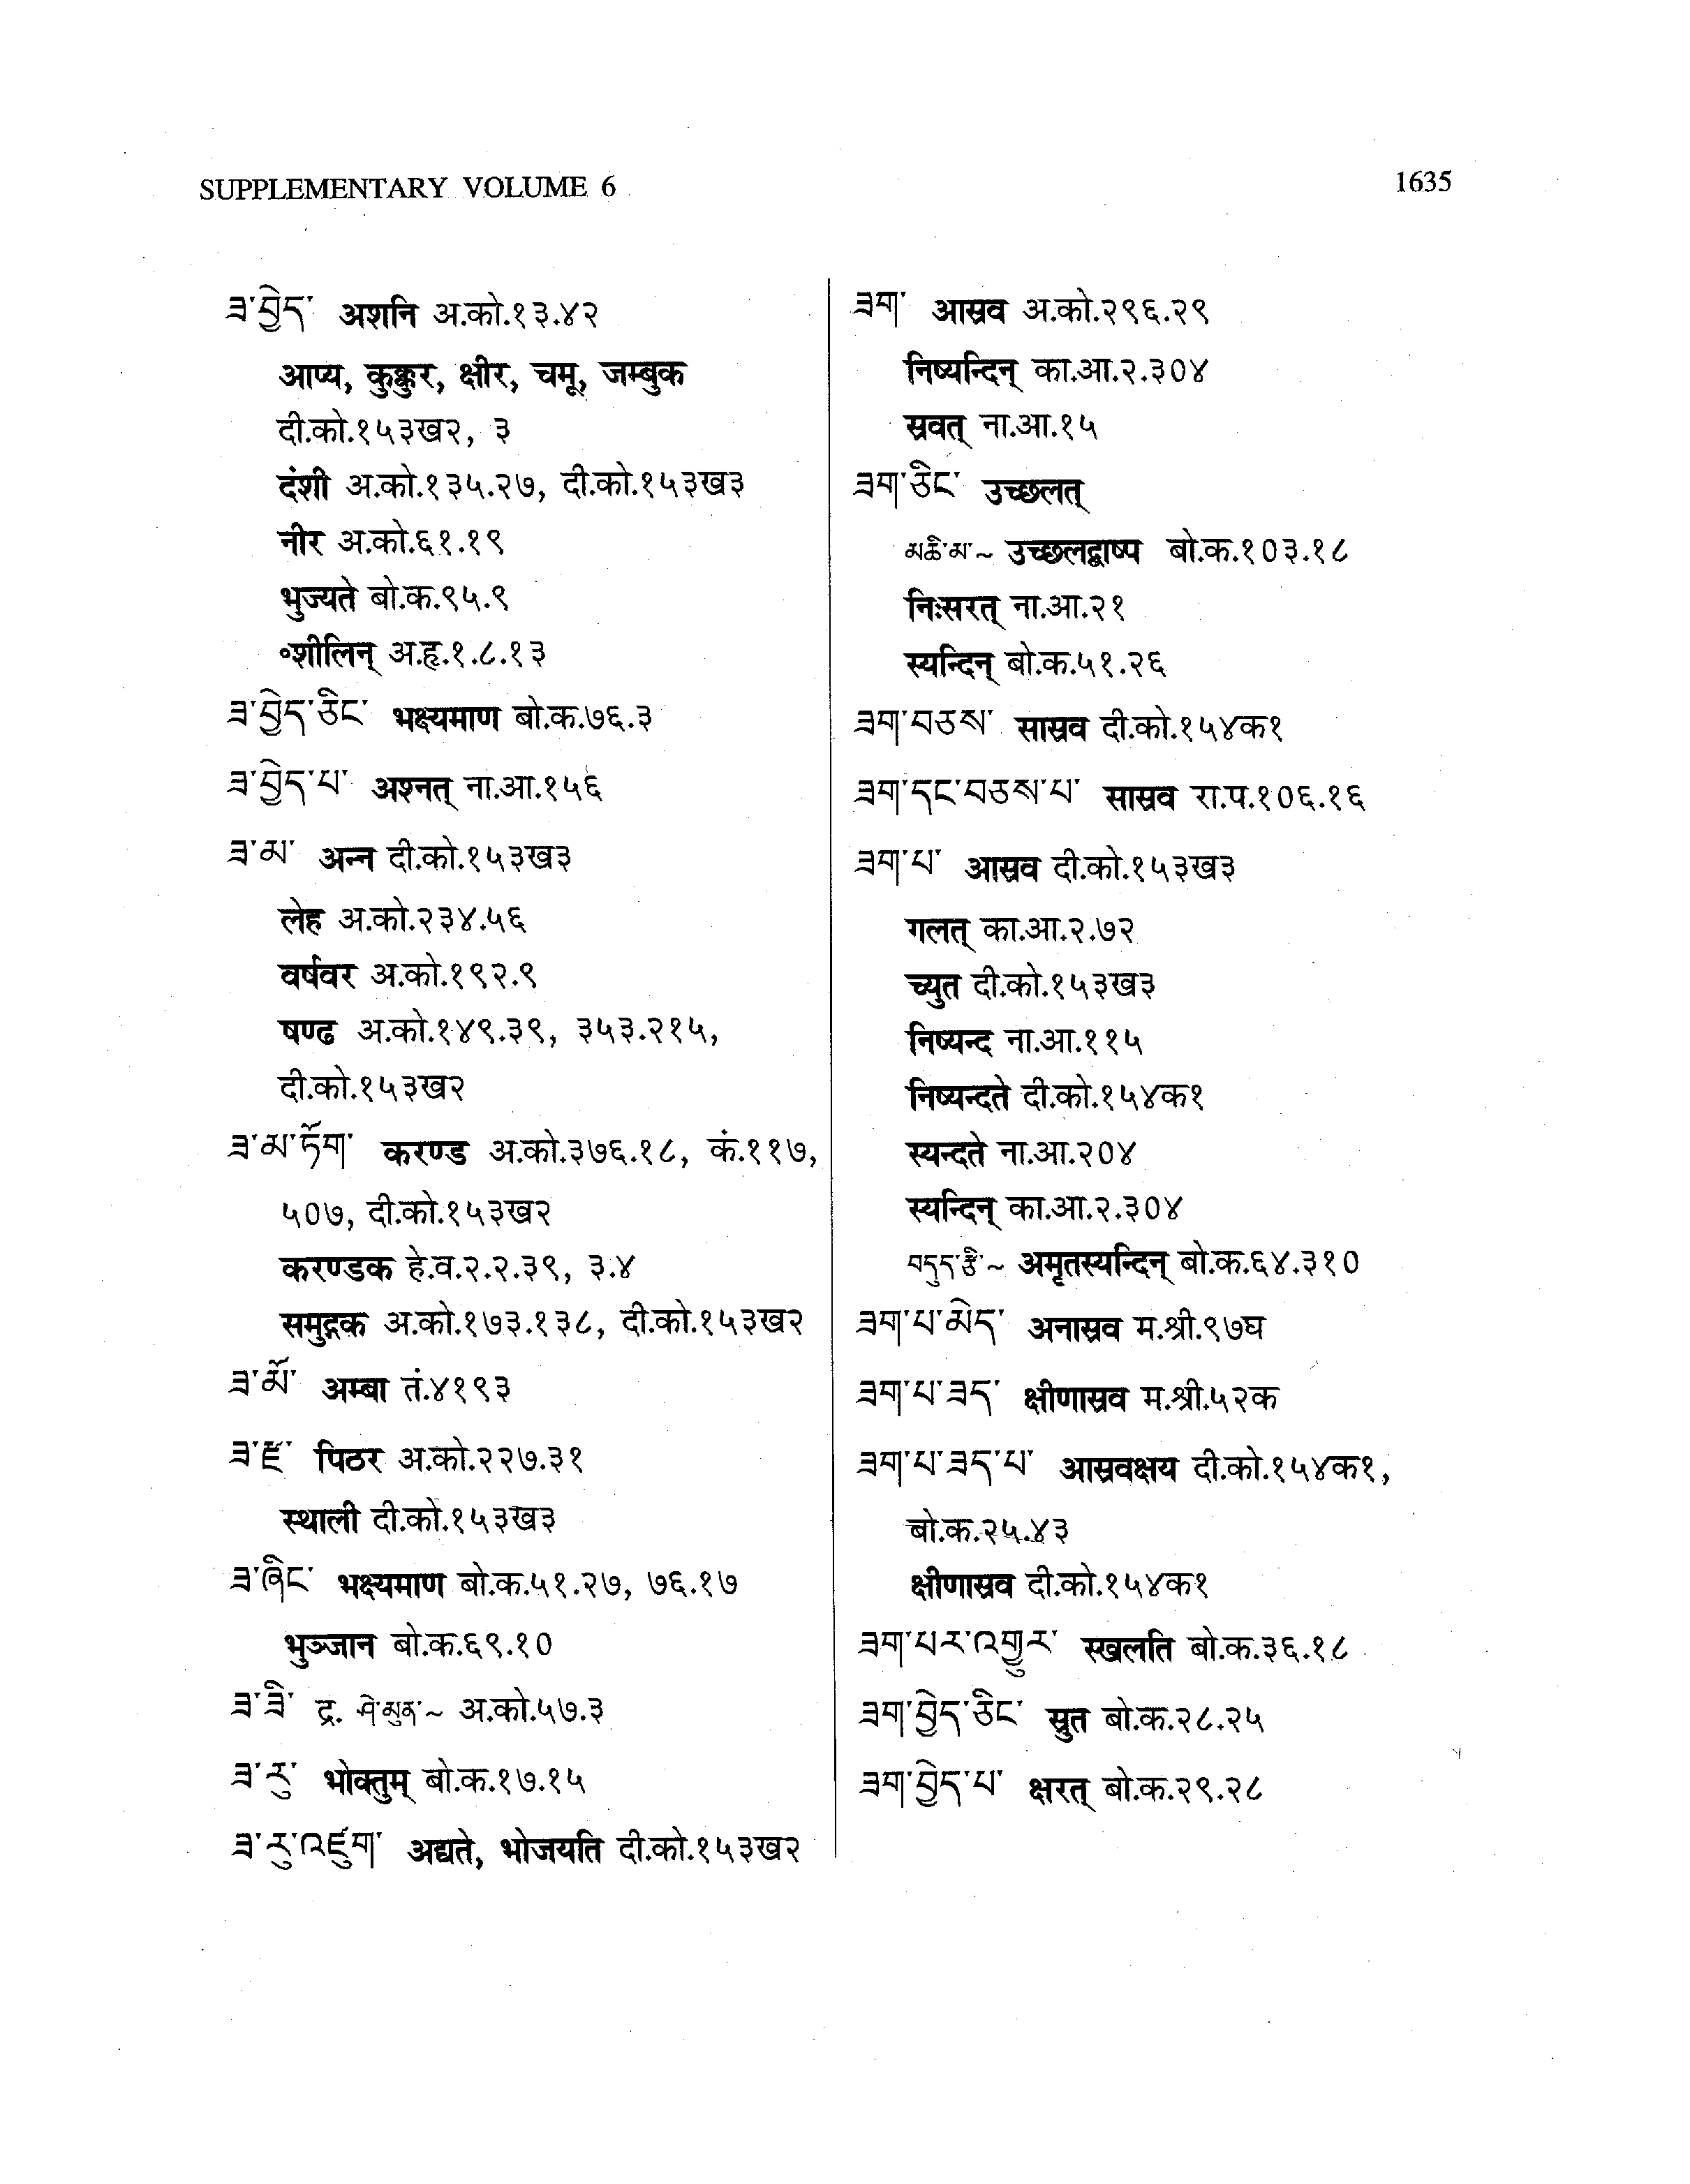 SUPPLEMENTARY VOLUME 6
1635
ཟ་བྱེད་ अशनि अ.को.१३.४२
आप्य, कुक्कुर, क्षीर, चमू, जम्बुक
दी.को.१५३ख२, ३
दंशी अ.को.१३५.२७, दी.को.१५३ख३
नीर अ.को.६१.१९
भुज्यते बो.क.९५.९
॰शीलिन् अ.हृ.१.८.१३
ཟ་བྱེད་ཅིང་ भक्ष्यमाण बो.क.७६.३
ཟ་བྱེད་པ་ अश्नत् ना.आ.१५६
ཟ་མ་ अन्न दी.को.१५३ख३
लेह अ.को.२३४.५६
वर्षवर अ.को.१९२.९
षण्ढ अ.को.१४९.३९, ३५३.२१५,
दी.को.१५३ख२
ཟ་མ་ཏོག་ करण्ड अ.को.३७६.१८, कं.११७,
५०७, दी.को.१५३ख२
करण्डक हे.व.२.२.३९, ३.४
समुद्गक अ.को.१७३.१३८, दी.को.१५३ख२
ཟ་མོ་ अम्बा तं.४१९३
ཟ་ཛ་ पिठर अ.को.२२७.३१
स्थाली दी.को.१५३ख३
ཟ་ཞིང་ भक्ष्यमाण बो.क.५१.२७, ७६.१७
भुञ्जान बो.क.६९.१०
ཟ་ཟི་ द्र. ཤེ་མུན་~ अ.को.५७.३
ཟ་རུ་ भोक्तुम् बो.क.१७.१५
ཟ་རུ་འཛུག་ अद्यते, भोजयति दी.को.१५३ख२
ཟག་ आस्रव अ.को.२९६.२९
निष्यन्दिन् का.आ.२.३०४
स्रवत् ना.आ.१५
ཟག་ཅིང་ उच्छलत्
མཆི་མ་~ उच्छलद्बाष्प बो.क.१०३.१८
निःसरत् ना.आ.२१
स्यन्दिन् बो.क.५१.२६
ཟག་བཅས་ सास्रव दी.को.१५४क१
ཟག་དང་བཅས་པ་ सास्रव रा.प.१०६.१६
ཟག་པ་ आस्रव दी.को.१५३ख३
गलत् का.आ.२.७२
च्युत दी.को.१५३ख३
निष्यन्द ना.आ.११५
निष्यन्दते दी.को.१५४क१
स्यन्दते ना.आ.२०४
स्यन्दिन् का.आ.२.३०४
བདུད་རྩི་~ अमृतस्यन्दिन् बो.क.६४.३१०
ཟག་པ་མེད་ अनास्रव म.श्री.९७घ
ཟག་པ་ཟད་ क्षीणास्रव म.श्री.५२क
ཟག་པ་ཟད་པ་ आस्रवक्षय दी.को.१५४क१,
बो.क.२५.४३
क्षीणास्रव दी.को.१५४क१
ཟག་པར་འགྱུར་ स्खलति बो.क.३६.१८
ཟག་བྱེད་ཅིང་ स्रुत बो.क.२८.२५
ཟག་བྱེད་པ་ क्षरत् बो.क.२९.२८